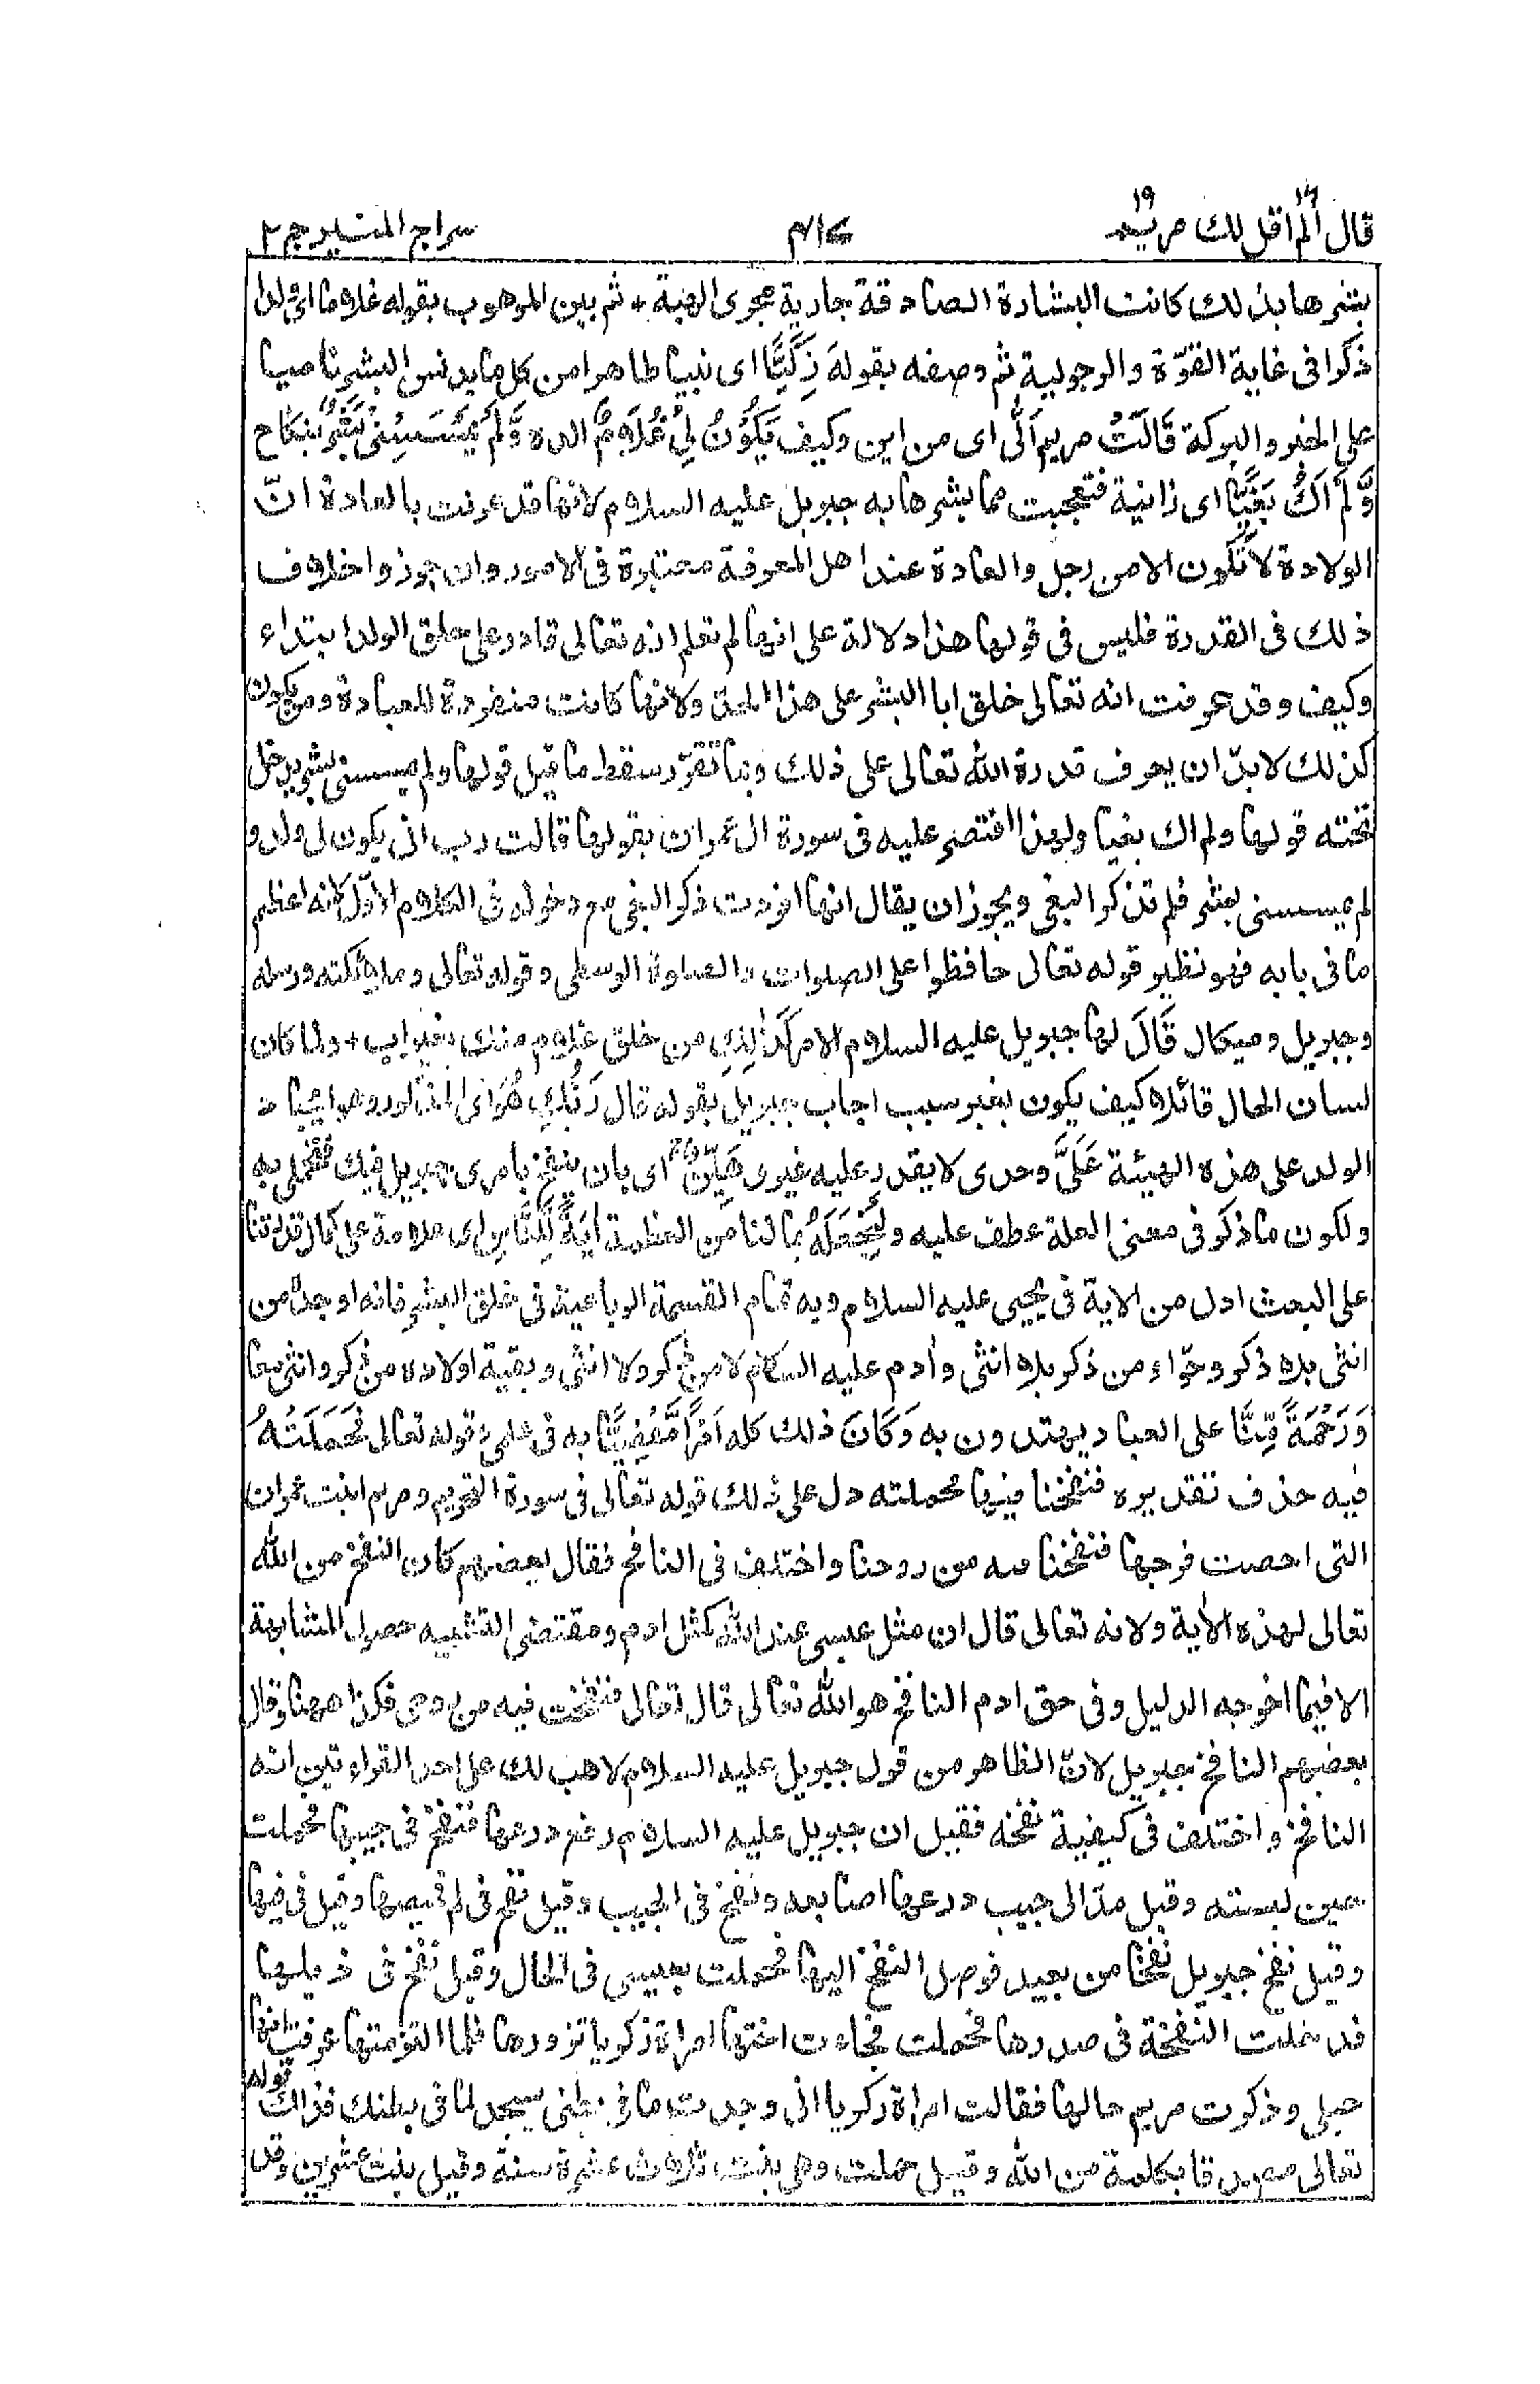 قال الم اقل لك ١٦ مريم ١٩
٤١٧
سراج المنير ج ٢
بشرها بذلك كانت البشارة الصادقة جارية مجرى الهبة + ثم بين الموهوب بقوله غلاما اى ولدا
ذكرا فى غاية القوّة والرجولية ثم وصفه بقوله زَكِيًّا اى نبيا طاهرا من كل ما يدنس البشر ناميا
على الخير والبركة قَالَتْ مريم اَنّٰى اى من اين وكيف يَكُوْنُ لِيْ غُلَامٌ الده وَّلَمْ يَمْسَسْنِيْ بَشَرٌ بنكاح
وَّلَمْ اَكُ بَغِيًّا اى زانية فتعجبت مما بشرها به جبريل عليه السلام لانها قد عرفت بالعادة انّ
الولادة لا تكون الا من رجل والعادة عند اهل المعرفة معتبرة فى الامور وان جوزوا خلاف
ذلك فى القدرة فليس فى قولها هذا دلالة على انها لم تعلم انه تعالى قادر على خلق الولد ابتداء
وكيف وقد عرفت انه تعالى خلق ابا البشر على هذا الحد ولانها كانت منفردة للعبادة ومن يكون
كذلك لا بدّ ان يعرف قدرة الله تعالى على ذلك وبما تقرّر سقط ما قيل قولها ولم يمسسنى بشر يدخل
تحته قولها ولم اك بغيا ولهذا اقتصر عليه فى سورة ال عمران بقولها قالت رب انى يكون لى ولد و
لم يمسسنى بشر فلم تذكر البغى ويجوز ان يقال انها افردت ذكر البغى مع دخوله فى الكلام الاوّل لانه اعظم
ما فى بابه فهو نظير قوله تعالى حافظوا على الصلوات والصلوة الوسطى وقوله تعالى وملائكته ورسله
وجبريل وميكال قَالَ لها جبريل عليه السلام الامر كَذٰلِكِ من خلق غلام منك بغير اب + ولما كان
لسان الحال قائلا كيف يكون بغير سبب اجاب جبريل بقوله قال رَبُّكِ هُوَ اى المذكور وهو ايجاد
الولد على هذه الهيئة عَلَيَّ وحدى لا يقدر عليه غيرى هَيِّنٌ اى بان ينفخ بامرى جبريل فيك فتحملى به
ولكون ما ذكر فى معنى العلة عطف عليه وَلِنَجْعَلَهٗ بما لنا من العظمة اٰيَةً لِّلنَّاسِ اى علامة على كمال قدرتنا
على البعث ادل من الاية فى يحيى عليه السلام وبه تمام القسمة الرباعية فى خلق البشر فانه اوجده من
انثى بلا ذكر وحوّاء من ذكر بلا انثى وادم عليه السلام لا من ذكر ولا انثى وبقية اولاده من ذكر وانثى معا
وَرَحْمَةً مِّنَّا على العباد يهتدون به وَكَانَ ذلك كله اَمْرًا مَّقْضِيًّا به فى علمى وقوله تعالى فَحَمَلَتْهُ
فيه حذف تقديره فنفخنا فيها فحملته دل على ذلك قوله تعالى فى سورة التحريم ومريم ابنت عمران
التى احصنت فرجها فنفخنا فيه من روحنا واختلف فى النافخ فقال بعضهم كان النفخ من الله
تعالى لهذه الاٰية ولانه تعالى قال ان مثل عيسى عند الله كمثل ادم ومقتضى التشبيه حصول المشابهة
الا فيما اخرجه الدليل وفى حق ادم النافخ هو الله تعالى قال تعالى فنفخت فيه من روحى فكذا ههنا وقال
بعضهم النافخ جبريل لانّ الظاهر من قول جبريل عليه السلام لاهب لك على احد القراءتين انه
النافخ واختلف فى كيفية نفخه فقيل ان جبريل عليه السلام رفع درعها فنفخ فى جيبها فحملت
حين لبسته وقيل مدّ الى جيب درعها اصابعه ونفخ فى الجيب وقيل نفخ فى كم قميصها وقيل فى فيها
وقيل نفخ جبريل نفخا من بعيد فوصل النفخ اليها فحملت بعيسى فى الحال وقيل نفخ فى ذيلها
فدخلت النفخة فى صدرها فحملت فجاءت اختها امراة زكريا تزورها فلما التزمتها عرفت انها
حبلى وذكرت مريم حالها فقالت امراة زكريا انى وجدت ما فى بطنى يسجد لما فى بطنك فذالك قوله
تعالى مصدقا بكلمة من الله وقيل حملت وهى بنت ثلاث عشرة سنة وقيل بنت عشرين وقد